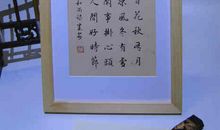 百花秋有月
涼風冬有雪
閒事掛心頭
人間好時節